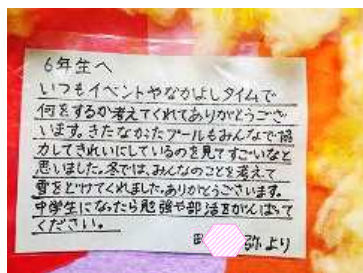 6年生へ
いつもイベントやなかよしタイムで
何をするか考えてくれてありがとうござ
います。きたなかったプールもみんなで協
力してきれいにしているのを見てすごいなと
思いました。冬では、みんなのことを考えて
雪をどけてくれました。ありがとうございます。
中学生になったら勉強や部活をがんばって
ください。
弥より